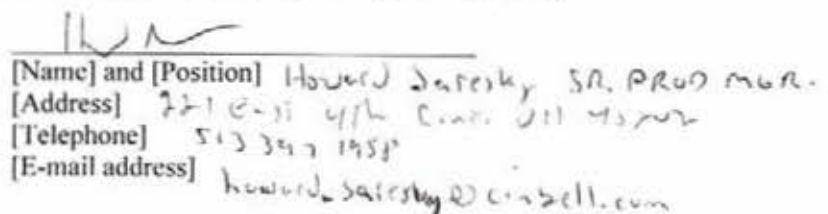 [Name] and [Position] Howard Saresky SR. PROD MGR.
[Address] 221 East 4th Cinci
[Telephone] 513 397 1958
[E-mail address] howard.saresky@cinbell.com